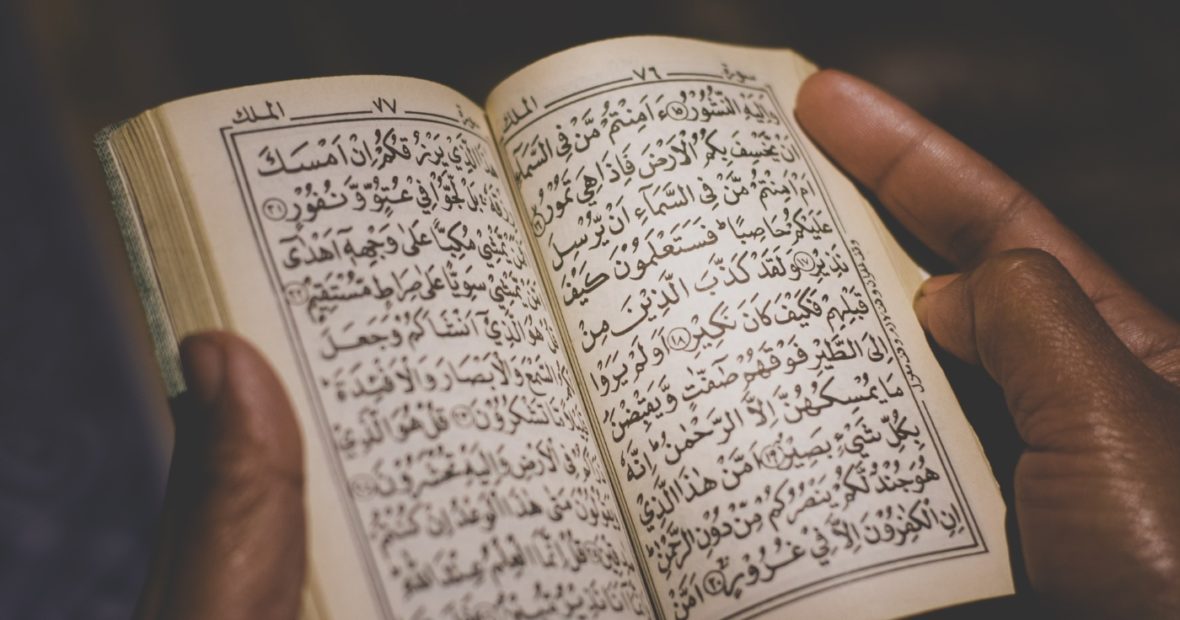 سورة ٧٦ الملك
وَاِلَيْهِ النُّشُوْرُ ۝١٥ ءَاَمِنْتُمْ مَّنْ فِي السَّمَآءِ
اَنْ يَّخْسِفَ بِكُمُ الْاَرْضَ فَاِذَا هِيَ تَمُوْرُ ۝١٦
اَمْ اَمِنْتُمْ مَّنْ فِي السَّمَآءِ اَنْ يُّرْسِلَ
عَلَيْكُمْ حَاصِبًا ؕ فَسَتَعْلَمُوْنَ كَيْفَ
نَذِيْرِ ۝١٧ وَلَقَدْ كَذَّبَ الَّذِيْنَ مِنْ
قَبْلِهِمْ فَكَيْفَ كَانَ نَكِيْرِ ۝١٨ اَوَلَمْ يَرَوْا
اِلَى الطَّيْرِ فَوْقَهُمْ صٰٓفّٰتٍ وَّيَقْبِضْنَ
مَا يُمْسِكُهُنَّ اِلَّا الرَّحْمٰنُ ؕ اِنَّهٗ
بِكُلِّ شَيْءٍ بَصِيْرٌ ۝١٩ اَمَّنْ هٰذَا الَّذِيْ
هُوَ جُنْدٌ لَّكُمْ يَنْصُرُكُمْ مِّنْ دُوْنِ الرَّحْمٰنِ ؕ
اِنِ الْكٰفِرُوْنَ اِلَّا فِيْ غُرُوْرٍ ۝٢٠ اَمَّنْ
٧٧ الملك
الَّذِيْ يَرْزُقُكُمْ اِنْ اَمْسَكَ
رِزْقَهٗ ۚ بَلْ لَّجُّوْا فِيْ عُتُوٍّ وَّنُفُوْرٍ ۝٢١
يَّمْشِيْ مُكِبًّا عَلٰى وَجْهِهٖٓ اَهْدٰٓى
يَّمْشِيْ سَوِيًّا عَلٰى صِرَاطٍ مُّسْتَقِيْمٍ ۝٢٢
قُلْ هُوَ الَّذِيْٓ اَنْشَاَكُمْ وَجَعَلَ
السَّمْعَ وَالْاَبْصَارَ وَالْاَفْـِٕدَةَ ؕ
مَّا تَشْكُرُوْنَ ۝٢٣ قُلْ هُوَ الَّذِيْ
فِي الْاَرْضِ وَاِلَيْهِ تُحْشَرُوْنَ ۝٢٤
وَيَقُوْلُوْنَ مَتٰى هٰذَا الْوَعْدُ اِنْ كُنْتُمْ
قُلْ اِنَّمَا الْعِلْمُ عِنْدَ اللّٰهِ
اَنَا نَذِيْرٌ مُّبِيْنٌ